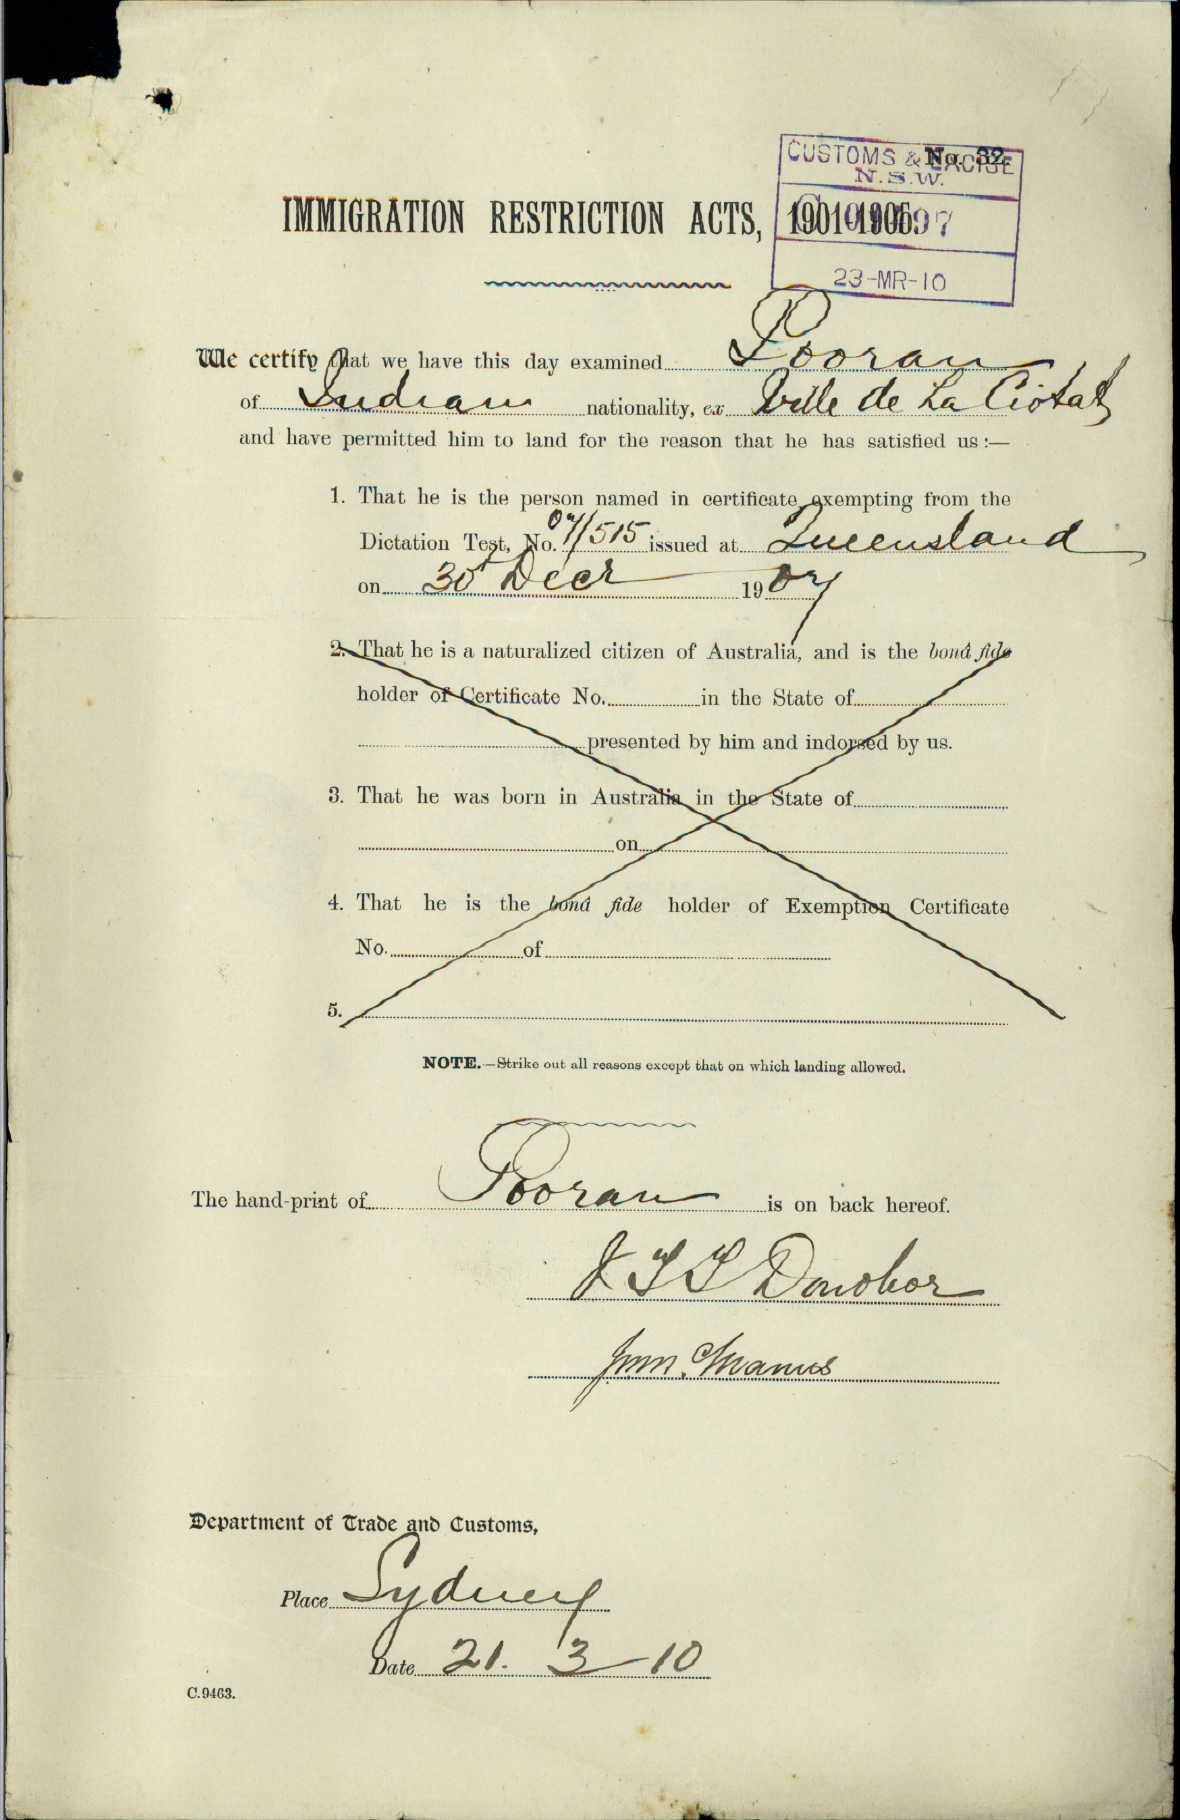 No. 32.
CUSTOMS & EXCISE
N.S.W.
IMMIGRATION RESTRICTION ACTS, 1901-1905.
23-MR-10
We certify that we have this day examined Pooran
of Indian nationality, ex Ville de La Ciotat
and have permitted him to land for the reason that he has satisfied us:—
1. That he is the person named in certificate exempting from the
Dictation Test, No. 07/515 issued at Queensland
on 30 Decr 1907
2. That he is a naturalized citizen of Australia, and is the bonâ fide
holder of Certificate No. in the State of
presented by him and indorsed by us.
3. That he was born in Australia in the State of
on
4. That he is the bonâ fide holder of Exemption Certificate
No. of
5.
NOTE.—Strike out all reasons except that on which landing allowed.
The hand-print of Pooran is on back hereof.
J T T Donohoe
Department of Trade and Customs,
Place Sydney
Date 21. 3 10
C.9463.